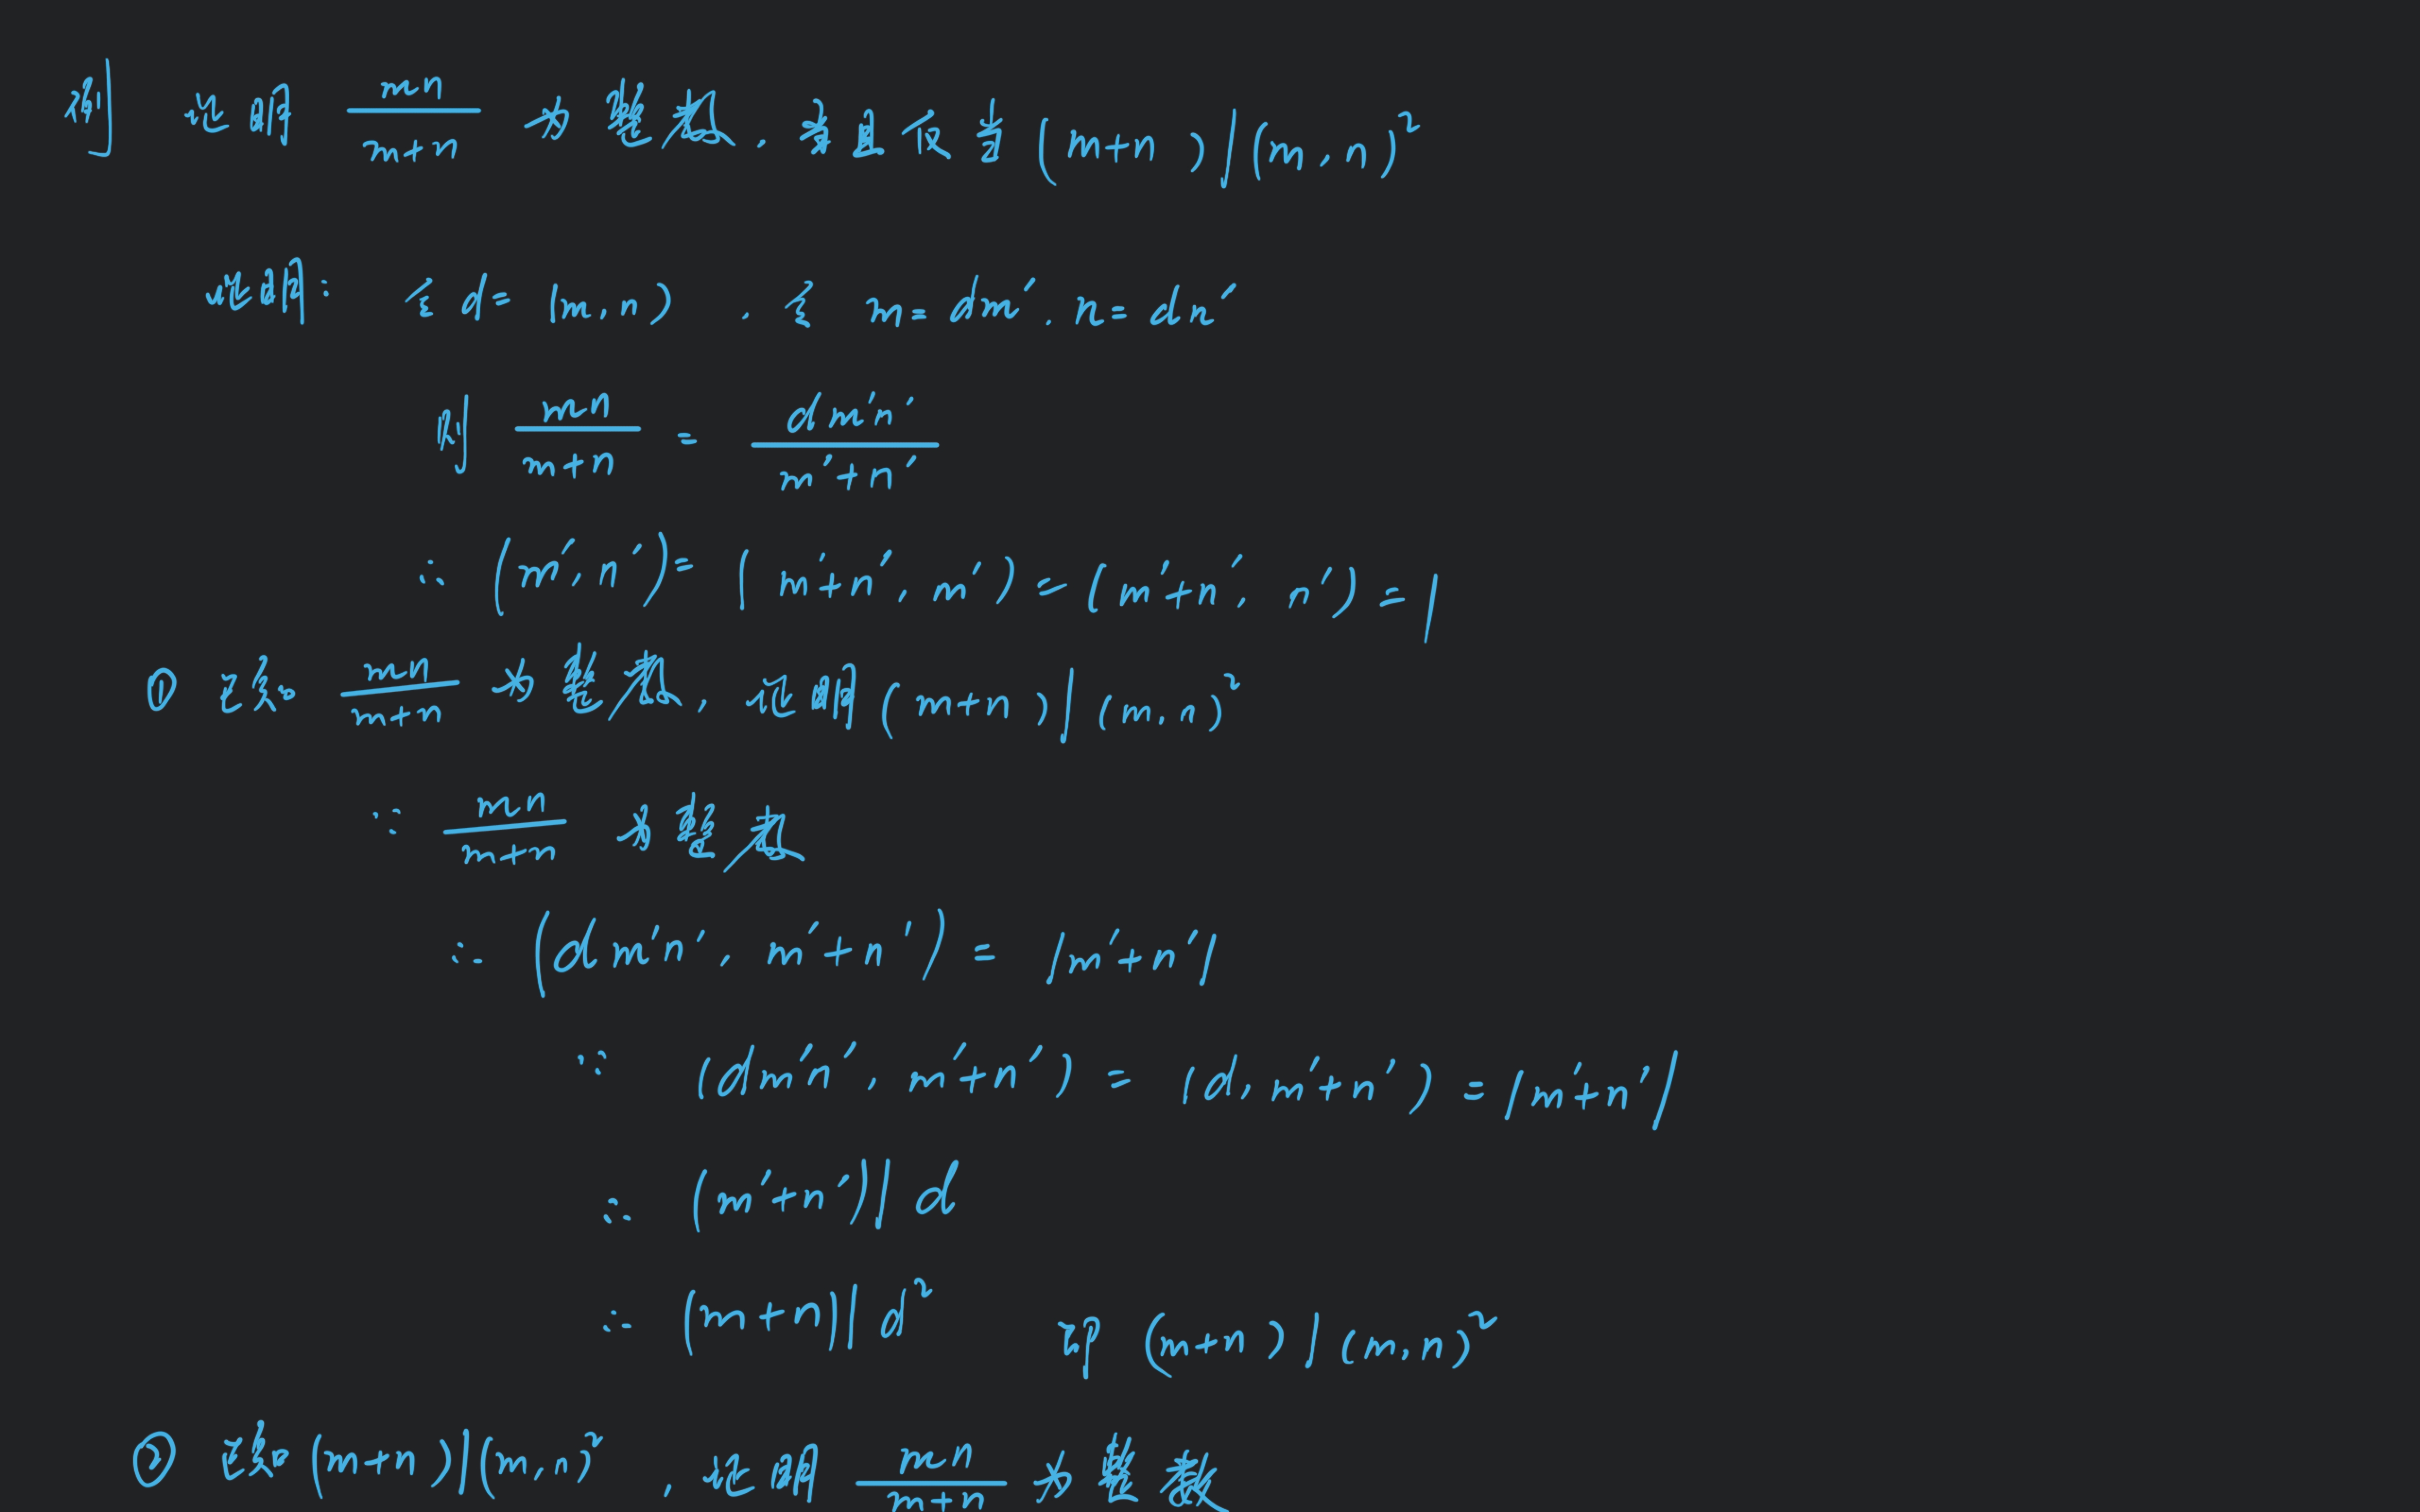 例 证明 mn/(m+n) 为整数，当且仅当 (m+n)|(m,n)²
证明：令 d=(m,n)，令 m=dm′，n=dn′
则 mn/(m+n) = dm′n′/(m′+n′)
∴ (m′,n′)=(m′+n′,m′)=(m′+n′,n′)=1
① 已知 mn/(m+n) 为整数，证明 (m+n)|(m,n)²
∵ mn/(m+n) 为整数
∴ (dm′n′,m′+n′)=|m′+n′|
∵ (dm′n′,m′+n′)=(d,m′+n′)=|m′+n′|
∴ (m′+n′)|d
∴ (m+n)|d² 即 (m+n)|(m,n)²
② 已知 (m+n)|(m,n)²，证明 mn/(m+n) 为整数